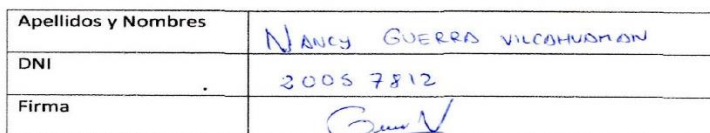 Apellidos y Nombres NANCY GUERRA VILCAHUAMAN
DNI 2005 7812
Firma